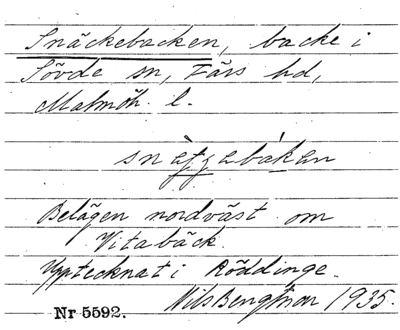 Snäckebacken, backe i
Sövde sn, Färs hd,
Malmöh. l.
Belägen nordväst om
Vitabäck.
Upptecknat i Röddinge.
Nils Bengtson 1935.
Nr 5592.